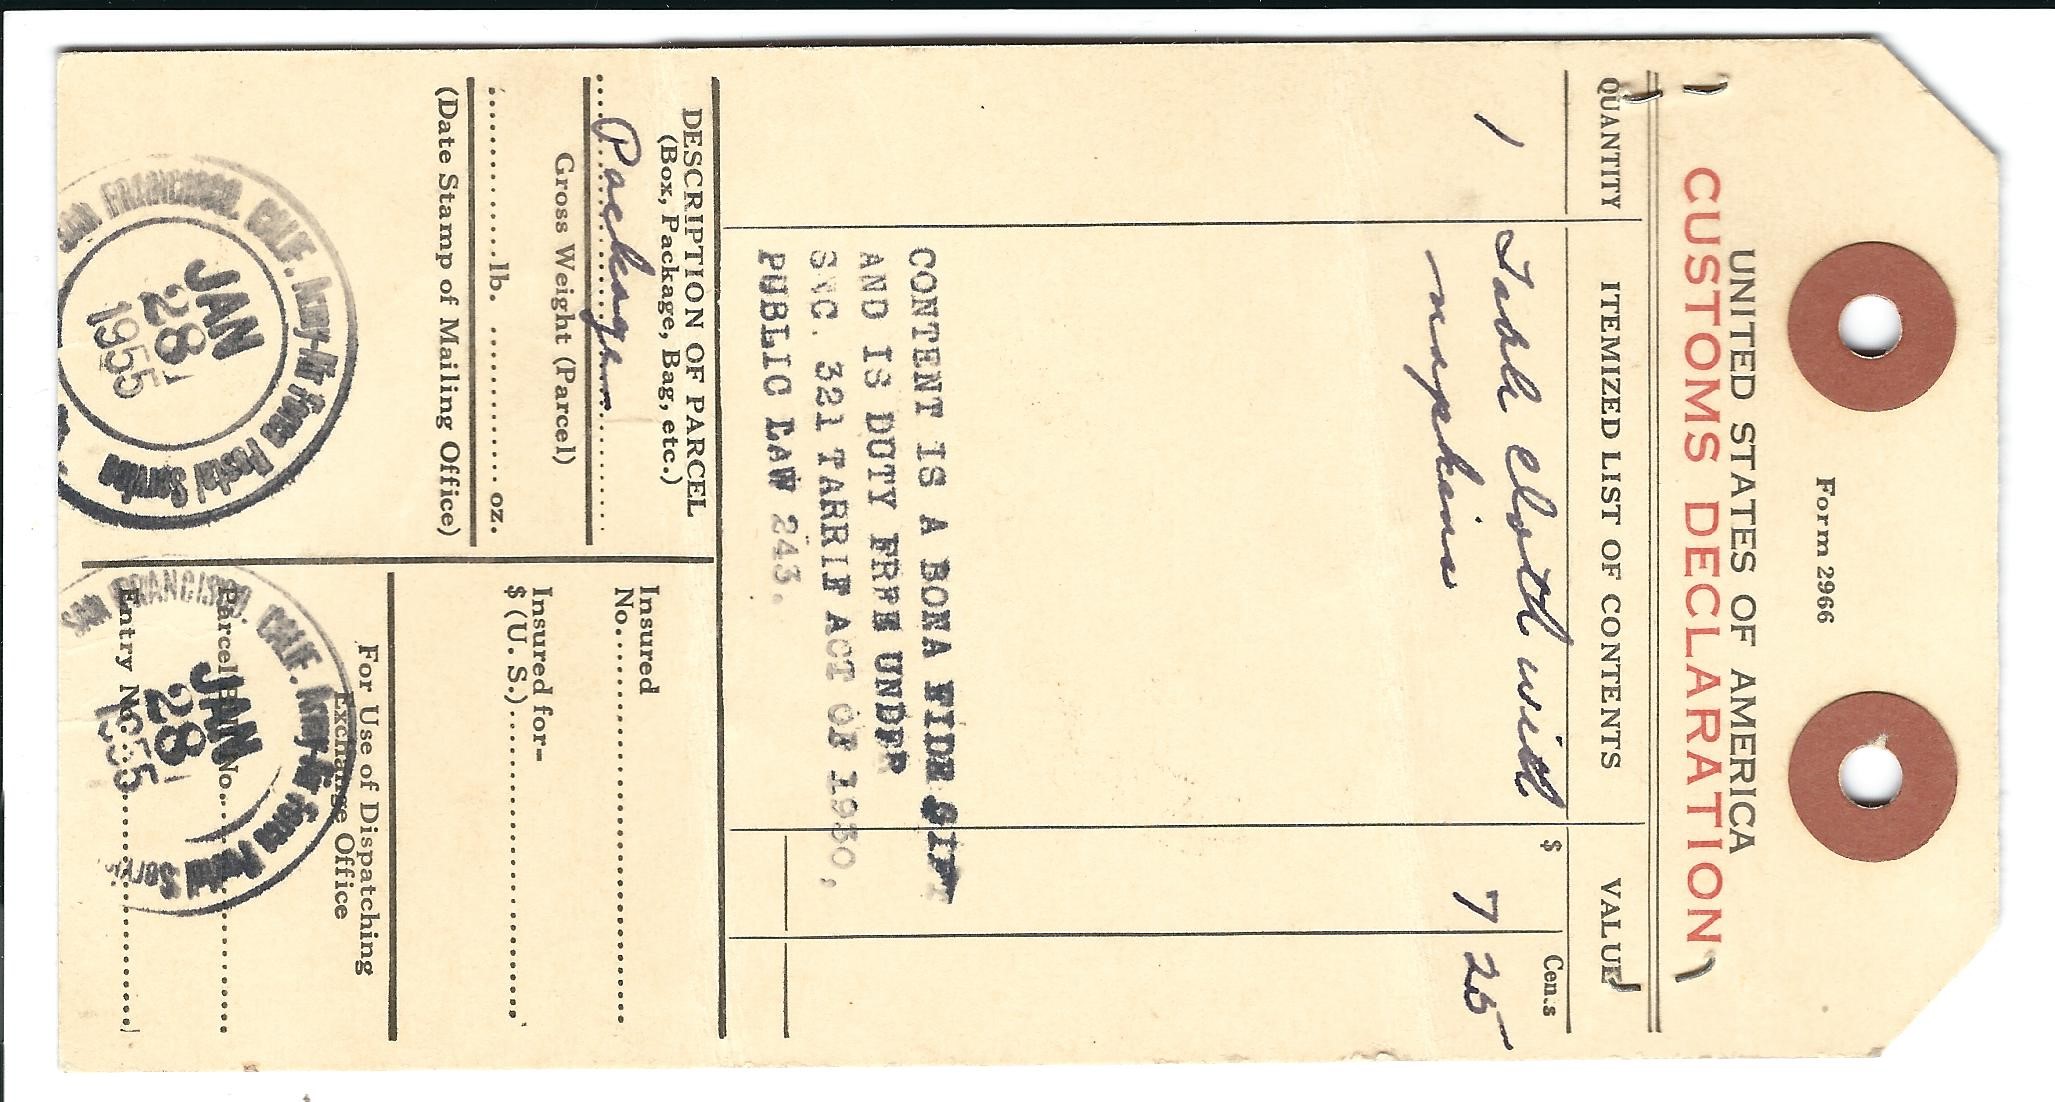 Form 2966
UNITED STATES OF AMERICA
CUSTOMS DECLARATION
QUANTITY ITEMIZED LIST OF CONTENTS VALUE
$ Cents
1 Table cloth with 7 25
napkins
CONTENT IS A BONA FIDE GIFT
AND IS DUTY FREE UNDER
SNC. 321 TARRIF ACT OF 1930,
PUBLIC LAW 243.
DESCRIPTION OF PARCEL
(Box, Package, Bag, etc.)
Package
Gross Weight (Parcel)
lb. oz.
(Date Stamp of Mailing Office)
SAN FRANCISCO, CALIF. Army-Air Force Postal Service
JAN
28
1955
Insured
No.
Insured for-
$ (U. S.)
For Use of Dispatching
Exchange Office
Parcel Bill No.
Entry No.
SAN FRANCISCO, CALIF. Army-Air Force Postal Service
JAN
28
1955